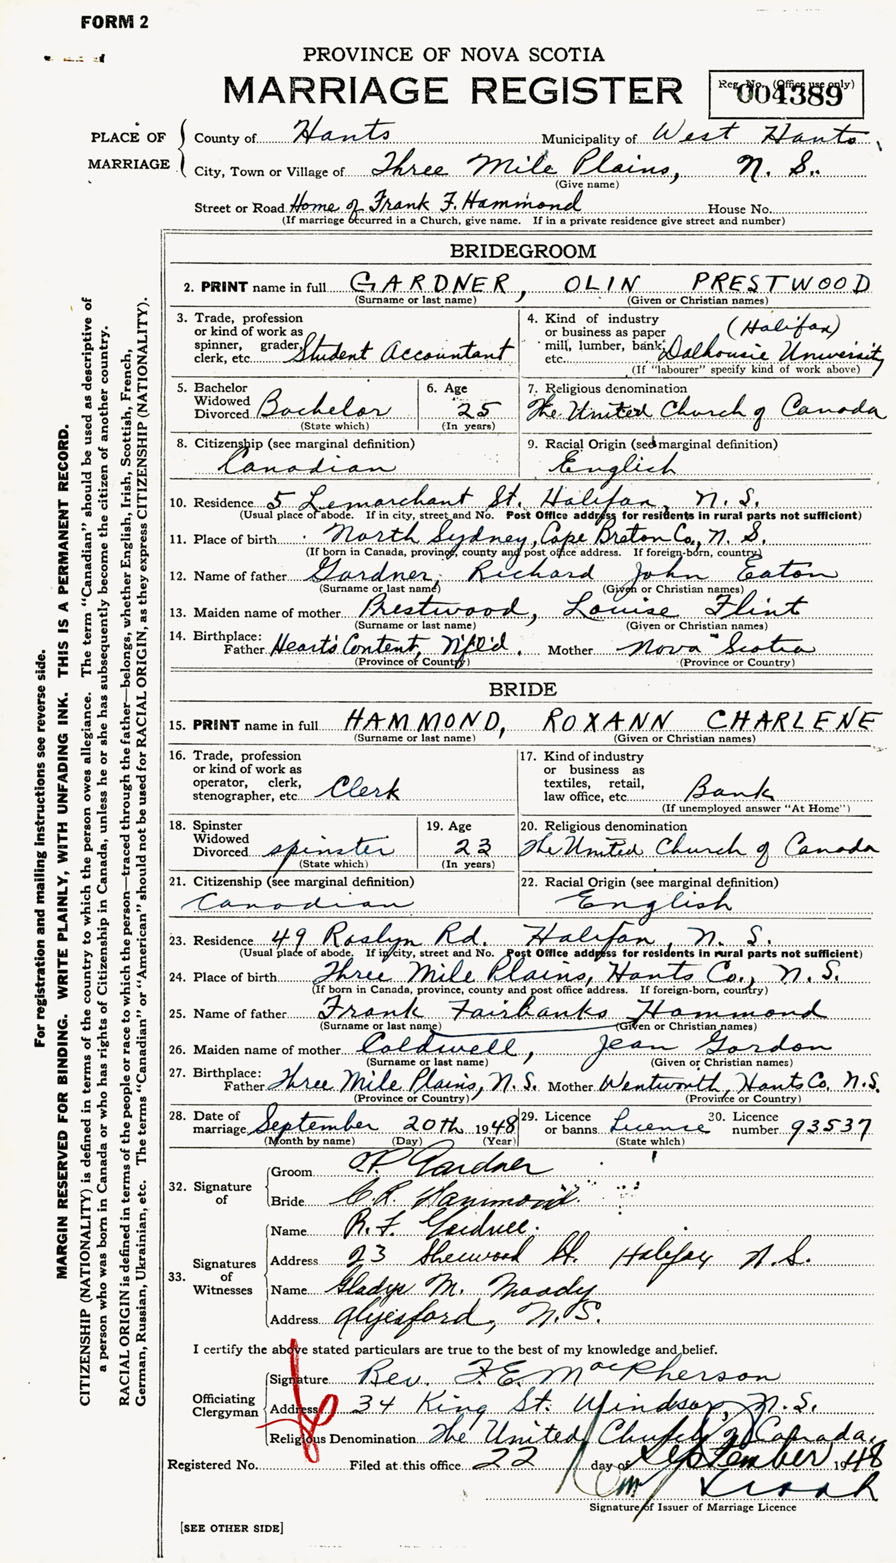 FORM 2
PROVINCE OF NOVA SCOTIA
MARRIAGE REGISTER
Reg. No. (Office use only)
004389
PLACE OF MARRIAGE
County of Hants Municipality of West Hants
City, Town or Village of Three Mile Plains, N. S.
(Give name)
Street or Road Home of Frank F. Hammond House No.
(If marriage occurred in a Church, give name. If in a private residence give street and number)
BRIDEGROOM
2. PRINT name in full GARDNER, OLIN PRESTWOOD
(Surname or last name) (Given or Christian names)
3. Trade, profession or kind of work as spinner, grader, clerk, etc. Student Accountant
4. Kind of industry or business as paper mill, lumber, bank, etc. (Halifax) Dalhousie University
(If "labourer" specify kind of work above)
5. Bachelor Widowed Divorced Bachelor
(State which)
6. Age 25
(In years)
7. Religious denomination
The United Church of Canada
8. Citizenship (see marginal definition)
Canadian
9. Racial Origin (see marginal definition)
English
10. Residence 5 Lemarchant St. Halifax, N. S.
(Usual place of abode. If in city, street and No. Post Office address for residents in rural parts not sufficient)
11. Place of birth North Sydney, Cape Breton Co., N. S.
(If born in Canada, province, county and post office address. If foreign-born, country)
12. Name of father Gardner, Richard John Eaton
(Surname or last name) (Given or Christian names)
13. Maiden name of mother Prestwood, Louise Flint
(Surname or last name) (Given or Christian names)
14. Birthplace:
Father Heart's Content, Nfl'd. Mother Nova Scotia
(Province or Country) (Province or Country)
BRIDE
15. PRINT name in full HAMMOND, ROXANN CHARLENE
(Surname or last name) (Given or Christian names)
16. Trade, profession or kind of work as operator, clerk, stenographer, etc. Clerk
17. Kind of industry or business as textiles, retail, law office, etc. Bank
(If unemployed answer "At Home")
18. Spinster Widowed Divorced spinster
(State which)
19. Age 23
(In years)
20. Religious denomination
The United Church of Canada
21. Citizenship (see marginal definition)
Canadian
22. Racial Origin (see marginal definition)
English
23. Residence 49 Roslyn Rd. Halifax, N. S.
(Usual place of abode. If in city, street and No. Post Office address for residents in rural parts not sufficient)
24. Place of birth Three Mile Plains, Hants Co., N. S.
(If born in Canada, province, county and post office address. If foreign-born, country)
25. Name of father Frank Fairbanks Hammond
(Surname or last name) (Given or Christian names)
26. Maiden name of mother Coldwell, Jean Gordon
(Surname or last name) (Given or Christian names)
27. Birthplace:
Father Three Mile Plains, N. S. Mother Wentworth, Hants Co. N.S.
(Province or Country) (Province or Country)
28. Date of marriage September 20th 1948
(Month by name) (Day) (Year)
29. Licence or banns Licence
(State which)
30. Licence number 93537
32. Signature of
Groom O.P. Gardner
Bride C.R. Hammond
33. Signatures of Witnesses
Name R. F.
Address 23 Sherwood St. Halifax N. S.
Name Gladys M. Moody
Address Aylesford, N. S.
I certify the above stated particulars are true to the best of my knowledge and belief.
Officiating Clergyman
Signature Rev. F. E. MacPherson
Address 34 King St. Windsor, N. S.
Religious Denomination The United Church of Canada.
Registered No. Filed at this office 22 day of September 1948
Signature of Issuer of Marriage Licence
[SEE OTHER SIDE]
For registration and mailing instructions see reverse side.
MARGIN RESERVED FOR BINDING. WRITE PLAINLY, WITH UNFADING INK. THIS IS A PERMANENT RECORD.
CITIZENSHIP (NATIONALITY) is defined in terms of the country to which the person owes allegiance. The term "Canadian" should be used as descriptive of
a person who was born in Canada or who has rights of Citizenship in Canada, unless he or she has subsequently become the citizen of another country.
RACIAL ORIGIN is defined in terms of the people or race to which the person—traced through the father—belongs, whether English, Irish, Scottish, French,
German, Russian, Ukrainian, etc. The terms "Canadian" or "American" should not be used for RACIAL ORIGIN, as they express CITIZENSHIP (NATIONALITY).